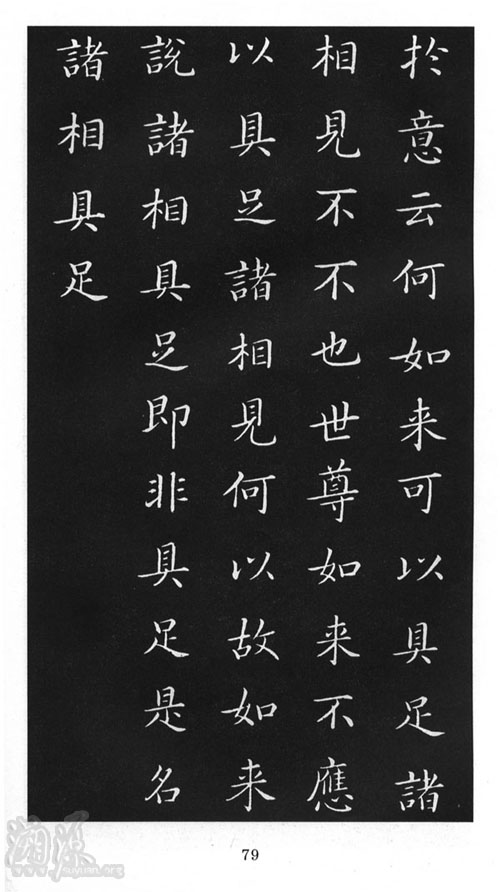 於意云何如来可以具足諸
相見不不也世尊如来不應
以具足諸相見何以故如来
說諸相具足即非具足是名
諸相具足
79
溯源
suyuan.org